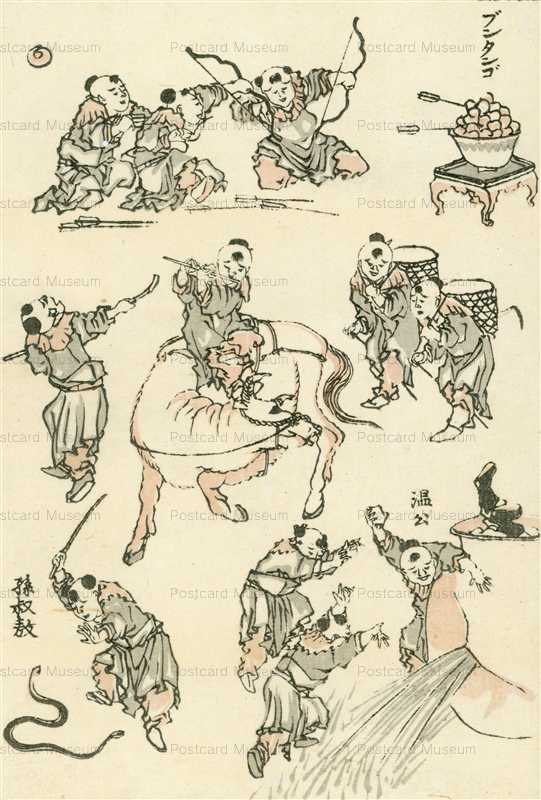 ブンタンゴ
温公
孫叔敖
Postcard Museum